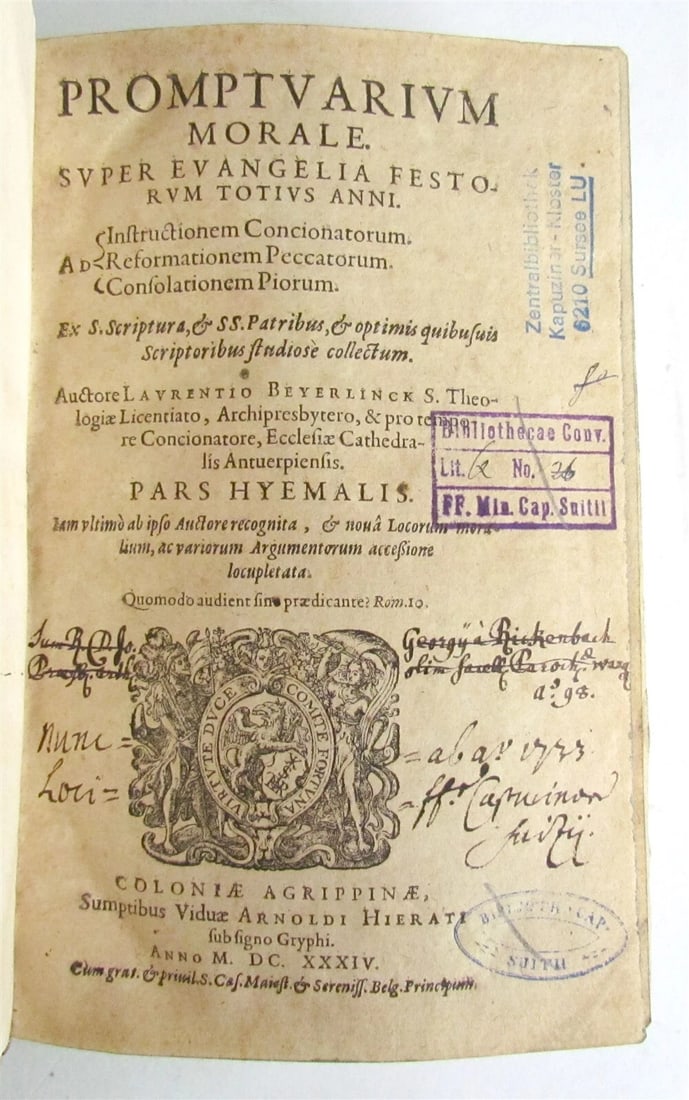 PROMPTVARIVM
MORALE.
SVPER EVANGELIA FESTO-
RVM TOTIVS ANNI.
AD
Inſtructionem Concionatorum.
Reformationem Peccatorum.
Conſolationem Piorum.
Ex S. Scriptura, & SS. Patribus, & optimis quibuſuis
Scriptoribus ſtudiosè collectum.
Auctore LAVRENTIO BEYERLINCK S. Theo-
logiæ Licentiato, Archipresbytero, & pro tempo-
re Concionatore, Eccleſiæ Cathedra-
lis Antuerpienſis.
PARS HYEMALIS.
Iam vltimò ab ipſo Auctore recognita, & nouâ Locorum mora-
lium, ac variorum Argumentorum acceßione
locupletata.
Quomodo audient ſine prædicante? Rom. 10.
Zentralbibliothek
Kapuziner-Kloster
6210 Sursee LU
Bibliothecae Conv.
Lit. No. 26
FF. Min. Cap. Suitii
Georgÿ à Rickenbach
olim
aº 98.
Nunc = = ab aº 1733
Loci = = ffr. Capucinor
Suitÿ.
VIRTVTE DVCE COMITE FORTVNA
COLONIÆ AGRIPPINÆ,
Sumptibus Viduæ ARNOLDI HIERATI
ſub ſigno Gryphi.
ANNO M. DC. XXXIV.
Cum grat. & priuil. S. Cæſ. Maieſt. & Sereniſſ. Belg. Principum.
BIBLIOTH. CAP.
SUITII